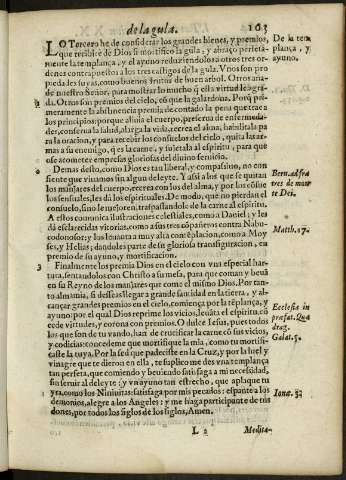 de la gula. 163
LO Tercero he de considerar los grandes bienes, y premios,
que recibe de Dios si mortifico la gula; y abraço perfeta-
mente la templança, y el ayuno reduziendolos a otros tres or-
denes contrapuestos a los tres castigos de la gula. Vnos son pro
De la tem
plança, y
ayuno.
nuestro Señor, para mostrar lo mucho q̃ esta virtud le agra-
da. Otros son premios del cielo, cõ que la galardona. Porq̃ pri-
meramente la abstinencia premia de contado la pena que trae a
los principios: porque aliuia el cuerpo, preserua de enfermeda-
des, conserua la salud, alarga la vida, recrea el alma, habilitala pa
ra la oracion, y para recibir los consuelos del cielo, quita las ar-
mas a su enemigo, q̃ es la carne, y sujetala al espiritu, para que
ose acometer empresas gloriosas del diuino seruicio.
2 Demas desto, como Dios es tan liberal, y compassiuo, no con
siente que viuamos sin algun deleyte. Y assi a los que se quitan
los manjares del cuerpo, recrea con los del alma, y por los cõsue
los sensuales, les dà los espirituales. De modo, que no pierdan el
consuelo, sino le mejoren, traspassandole de la carne al espiritu.
A estos comunica ilustraciones celestiales, como a Daniel; y les
dà esclarecidas vitorias, como a sus tres cõpañeros contra Nabu-
codonosor; y los leuanta a muy alta contẽplacion, como a Moy
ses, y Helias; dandoles parte de su gloriosa transfiguracion, en
premio de su ayuno, y mortificacion.
Matth. 17.
3 Finalmente los premia Dios en el cielo con vna especial har-
tura, sentandolos con Christo a su mesa, para que coman y beuã
en su Reyno de los manjares que come el mismo Dios. Por tan-
to alma mia, si desseas llegar a grande santidad en la tierra, y al-
cançar grandes premios en el cielo, comiença por la tẽplança, y
ayuno: por el qual Dios reprime los vicios, leuãta el espiritu, cõ
cede virtudes, y corona con premios. O dulce Iesus, pues todos
los que son de tu vando, han de crucificar la carne cõ sus vicios,
y codicias: concedeme que mortifique la mia, como tu mortifi-
caste la tuya. Por la sed que padeciste en la Cruz, y por la hiel y
vinagre que te dieron en ella, te suplico me des vna templança
tan perfeta, que comiendo y beuiendo satisfaga a mi necesidad,
sin seruir al deleyte; y vn ayuno tan estrecho, que aplaque tu
yra, como los Niniuitas: satisfaga por mis pecados: espante a los
demonios, alegre a los Angeles: y me haga participante de tus
dones, por todos los siglos de los siglos, Amen.
Ecclesia in
præfat. Qua
drag.
Galat. 5.
Ionæ. 3.
L 2 Medita-